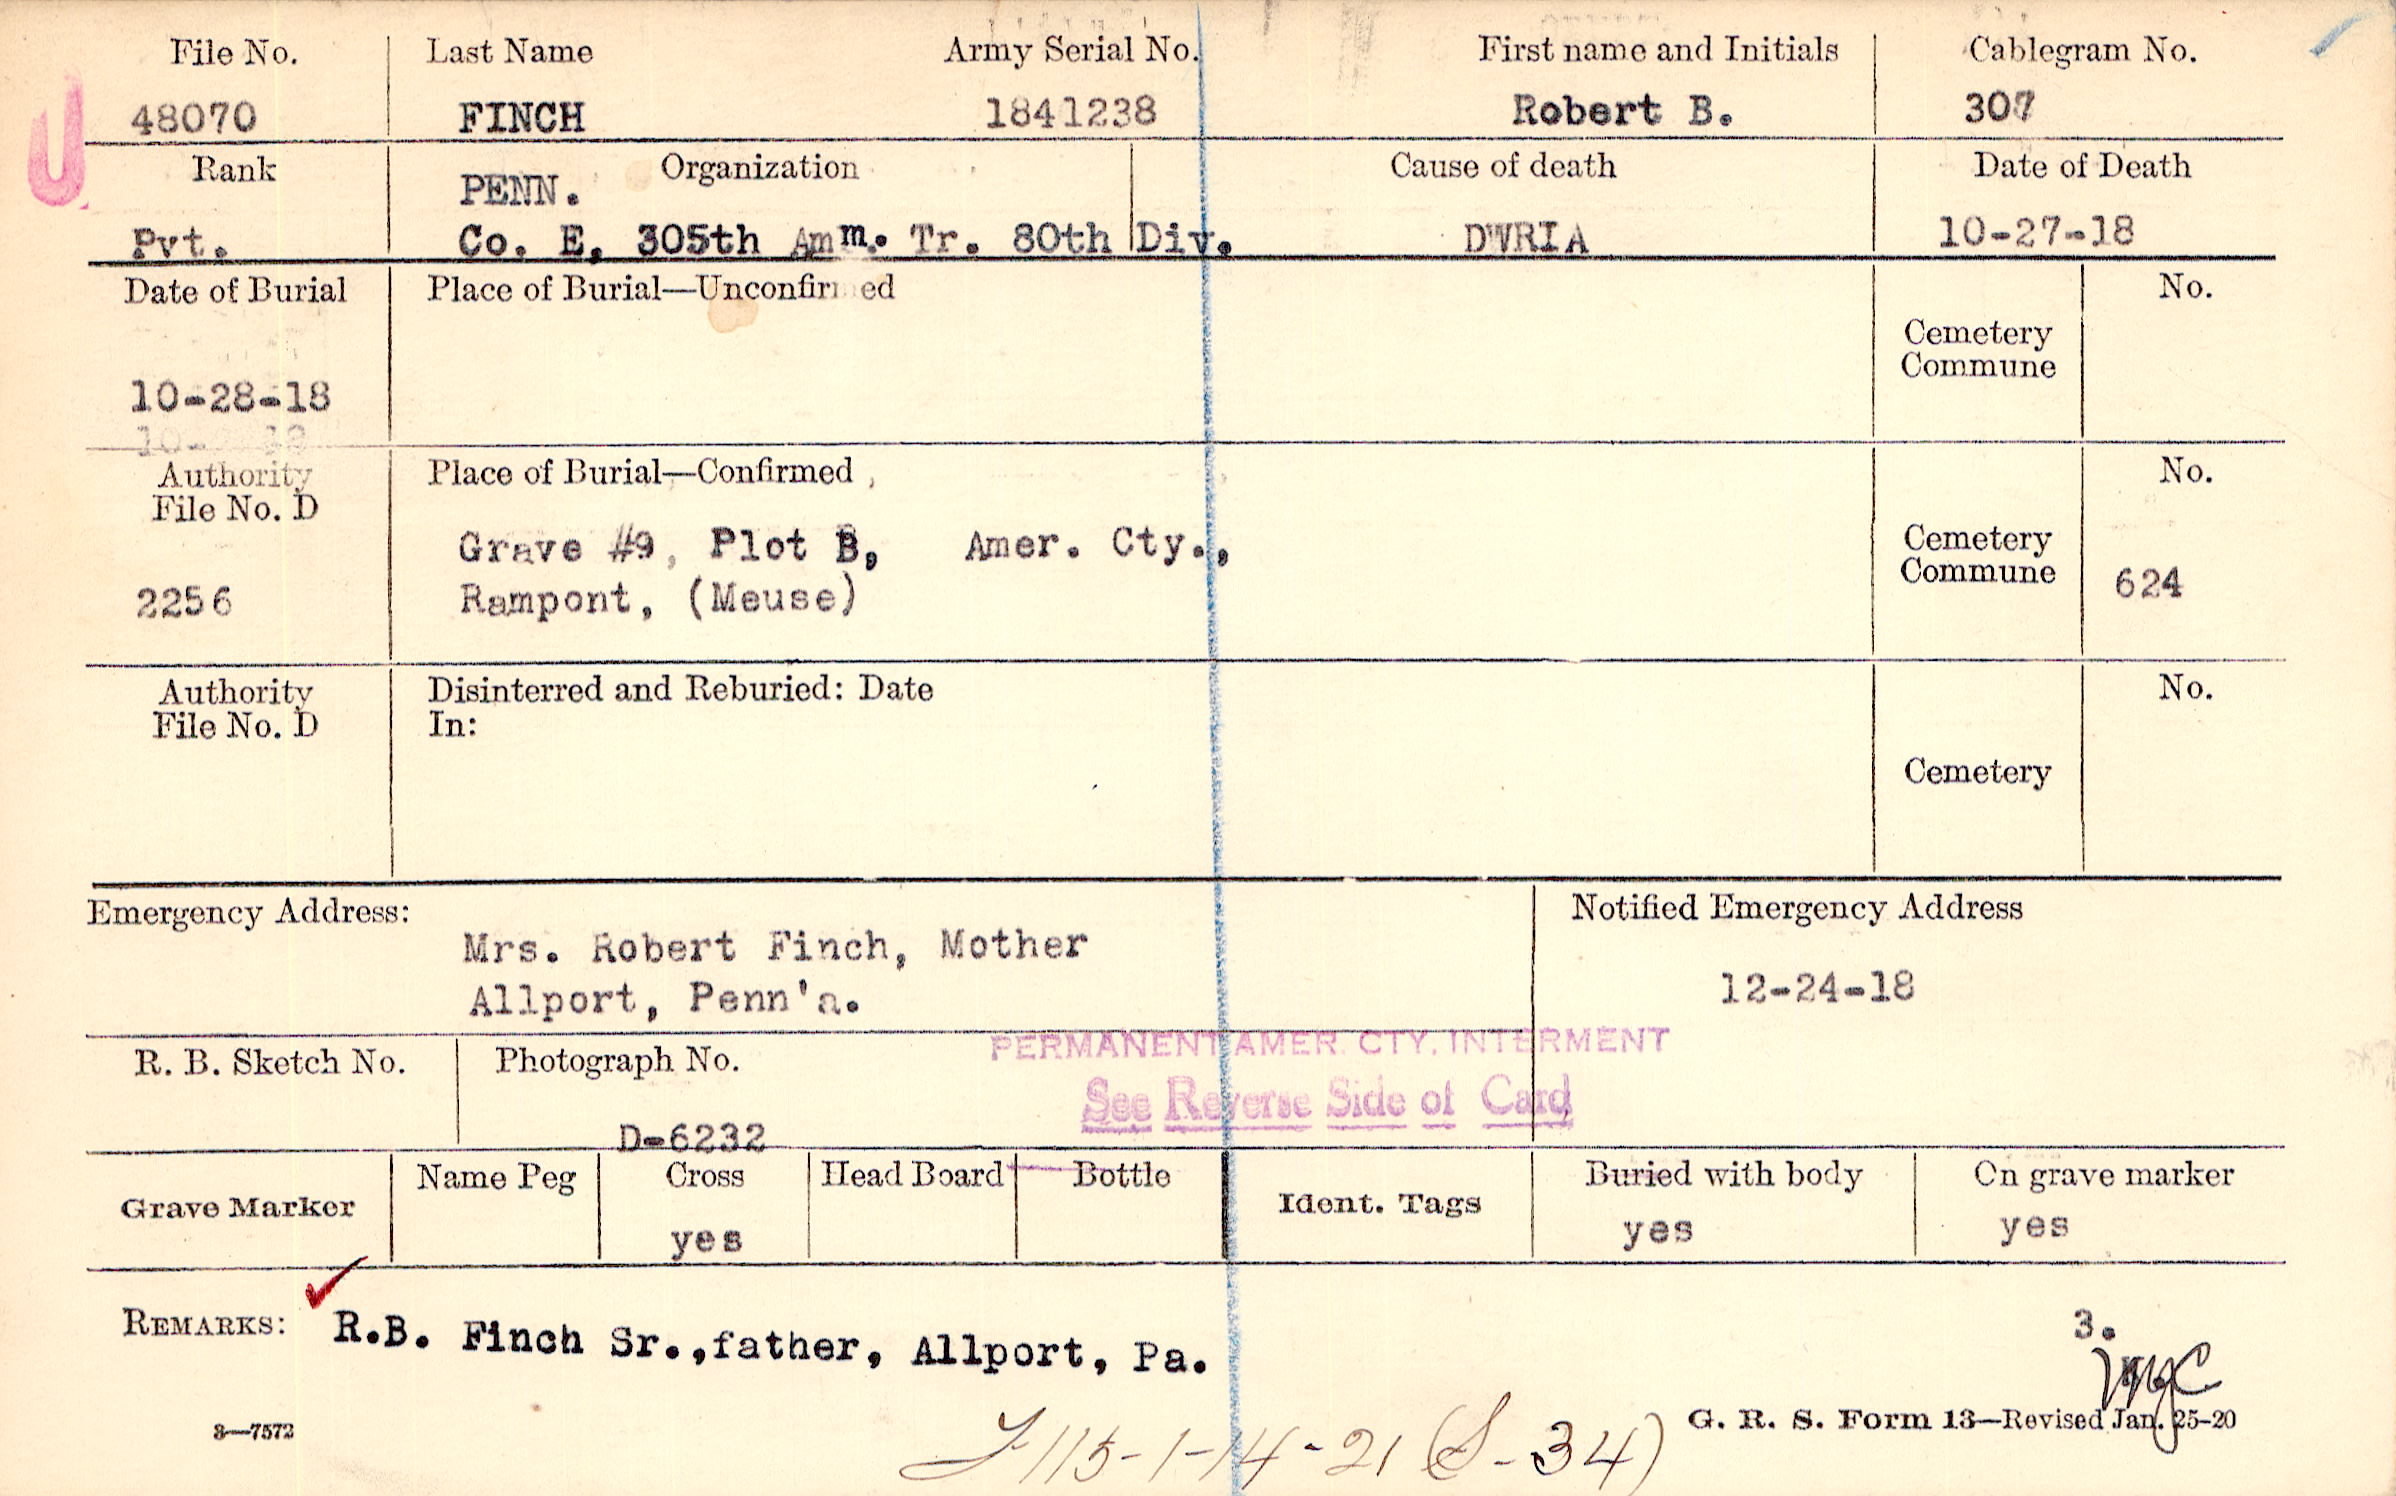 File No. Last Name Army Serial No. First name and Initials Cablegram No.
48070 FINCH 1841238 Robert B. 307
Rank Organization Cause of death Date of Death
PENN.
Pvt. Co. E, 305th Amm. Tr. 80th Div. DWRIA 10-27-18
Date of Burial Place of Burial—Unconfirmed No.
Cemetery
Commune
10-28-18
Authority Place of Burial—Confirmed No.
File No. D
Grave #9, Plot B, Amer. Cty., Cemetery
Commune
2256 Rampont, (Meuse) 624
Authority Disinterred and Reburied: Date No.
File No. D In:
Cemetery
Emergency Address: Notified Emergency Address
Mrs. Robert Finch, Mother
Allport, Penn'a. 12-24-18
PERMANENT AMER. CTY. INTERMENT
R. B. Sketch No. Photograph No.
See Reverse Side of Card
D-6232
Grave Marker Name Peg Cross Head Board Bottle Ident. Tags Buried with body On grave marker
yes yes yes
REMARKS: R.B. Finch Sr., father, Allport, Pa. 3.
3—7572 G. R. S. Form 13—Revised Jan. 25-20
115-1-14-21 (S-34)
U